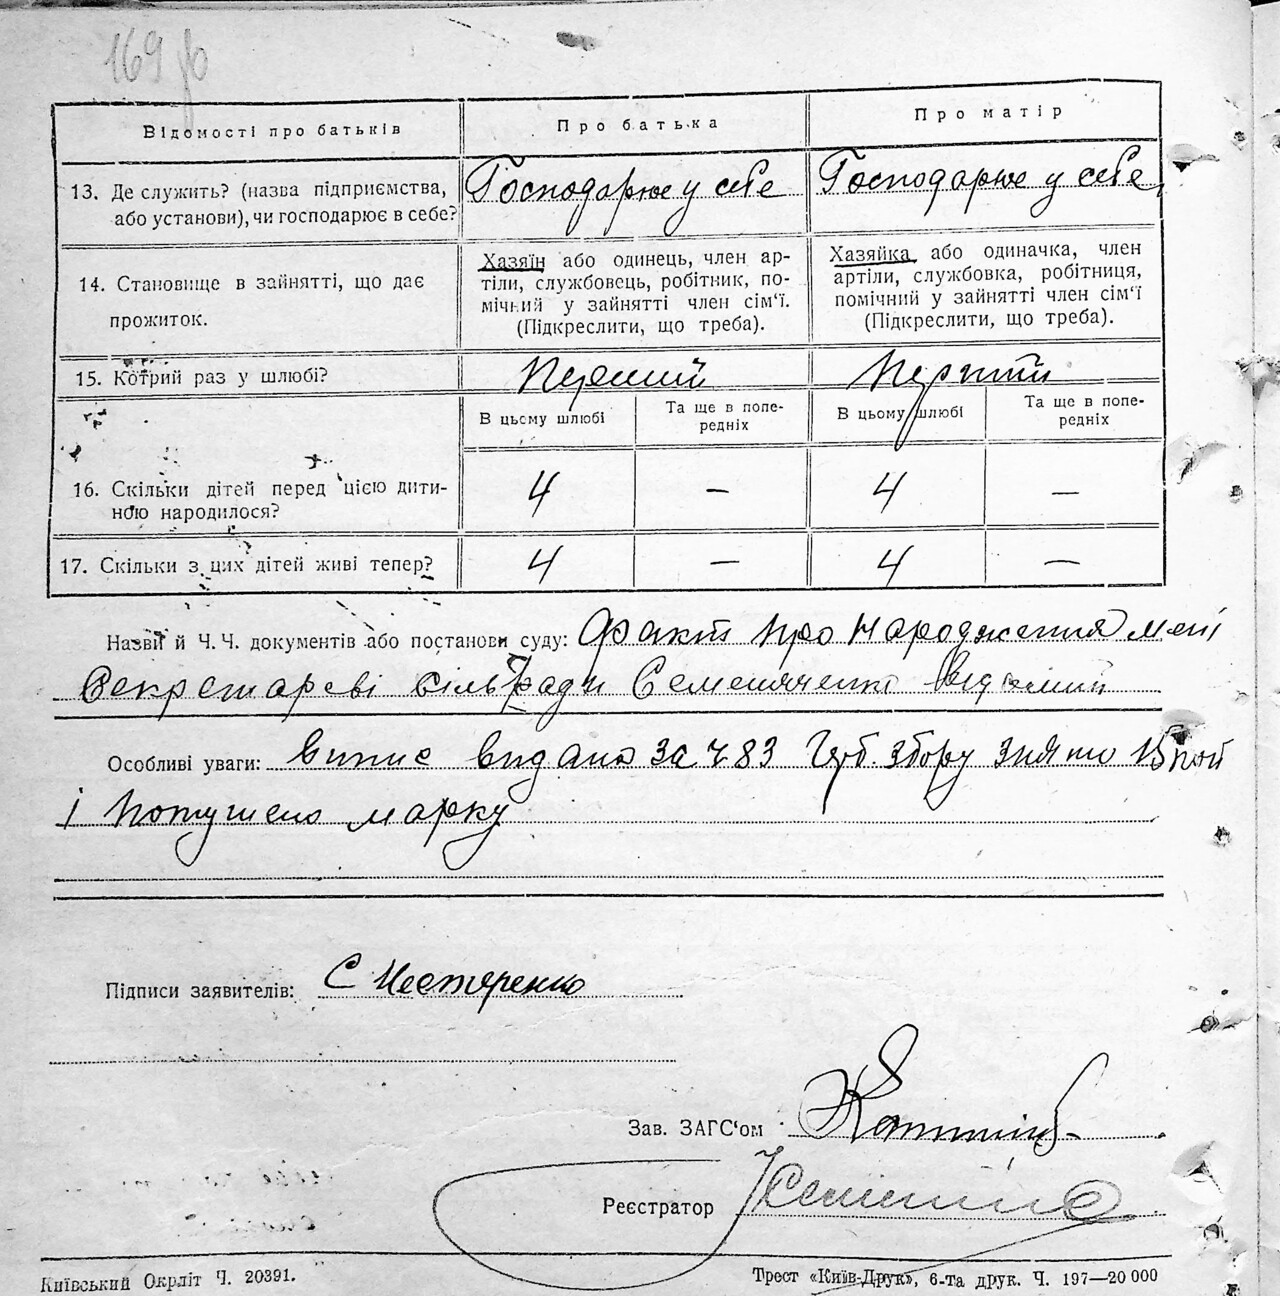 169 зв
Відомості про батьків
Про батька
Про матір
13. Де служить? (назва підприємства, або установи), чи господарює в себе?
Господарює у себе
Господарює у себе
14. Становище в зайнятті, що дає прожиток.
Хазяїн або одинець, член ар-
тіли, службовець, робітник, по-
мічний у зайнятті член сім'ї.
(Підкреслити, що треба).
Хазяйка або одиначка, член
артіли, службовка, робітниця,
помічний у зайнятті член сім'ї
(Підкреслити, що треба).
15. Котрий раз у шлюбі?
Перший
Перший
В цьому шлюбі
Та ще в попе-
редніх
В цьому шлюбі
Та ще в попе-
редніх
16. Скільки дітей перед цією дити-
ною народилося?
4 — 4 —
17. Скільки з цих дітей живі тепер?
4 — 4 —
Назви й Ч.Ч. документів або постанови суду: Факт про народження мені
Секретареві сільради Семеняченко
Особливі уваги: Випис видано за ч 83 Гуд. збору знято 15 коп
і погушено марку
Підписи заявителів: С Нестеренко
Зав. ЗАГС'ом
Реєстратор
Київський Окрліт Ч. 20391.
Трест «Київ-Друк», 6-та друк. Ч. 197—20 000